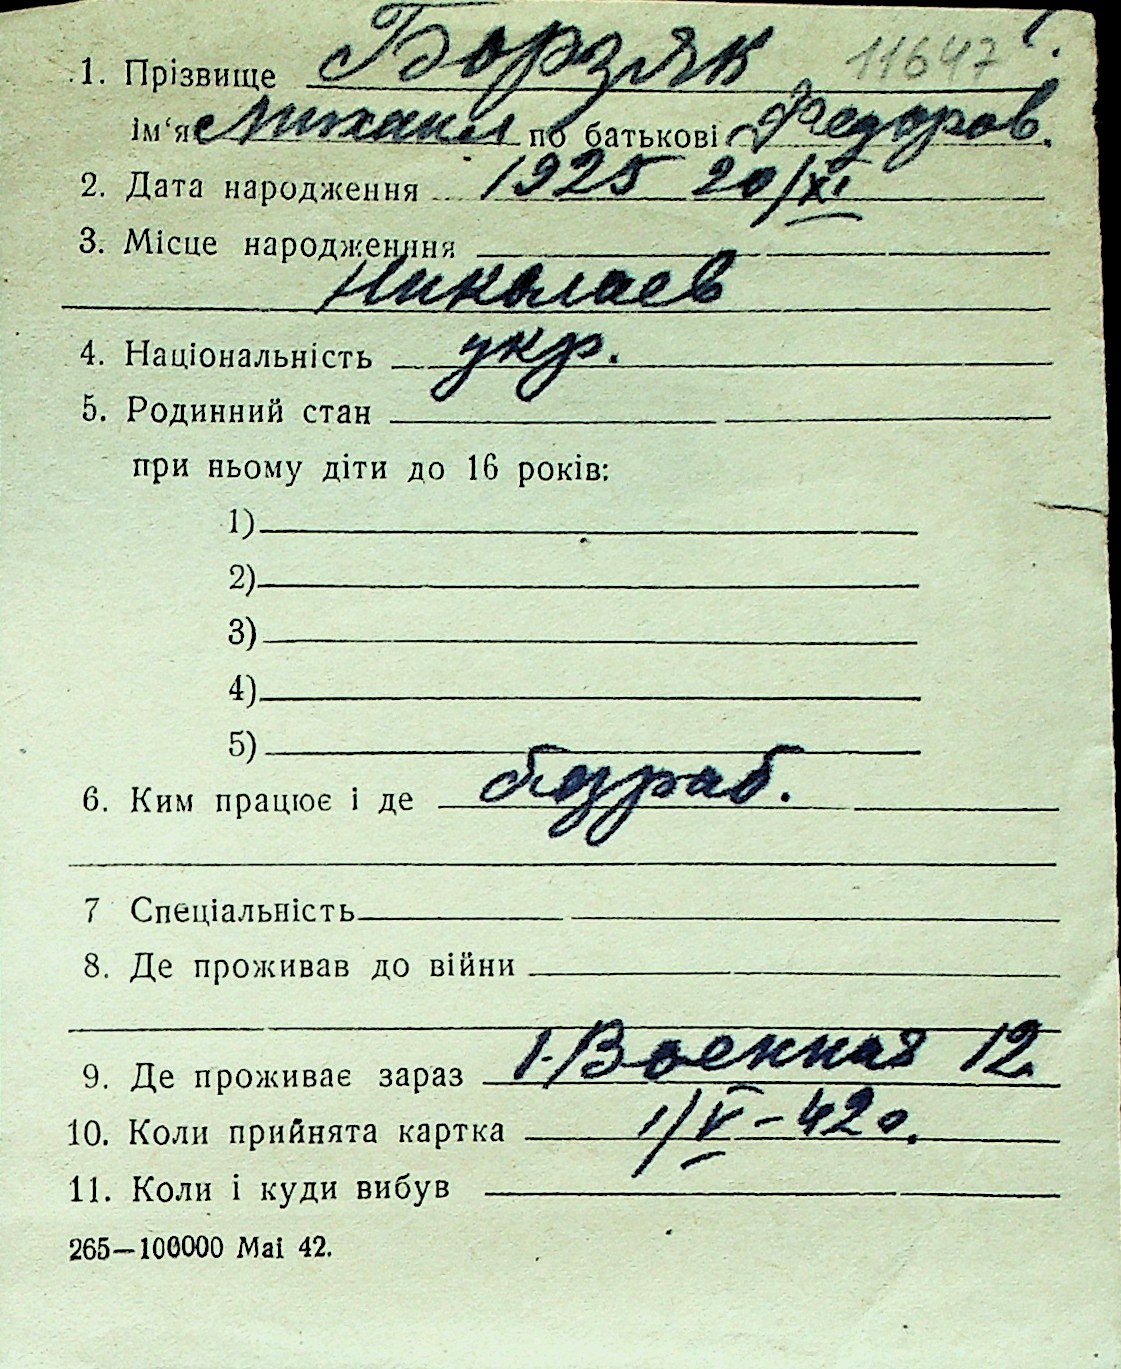 11647
1. Прізвище Борзяк
ім'я Михаил по батькові Федоров.
2. Дата народження 1925 20/XI
3. Місце народженння
Николаев
4. Національність укр.
5. Родинний стан
при ньому діти до 16 років:
1)
2)
3)
4)
5)
6. Ким працює і де безраб.
7 Спеціальність
8. Де проживав до війни
9. Де проживає зараз 1. Военная 12.
10. Коли прийнята картка 1/V-42г.
11. Коли і куди вибув
265—100000 Mai 42.